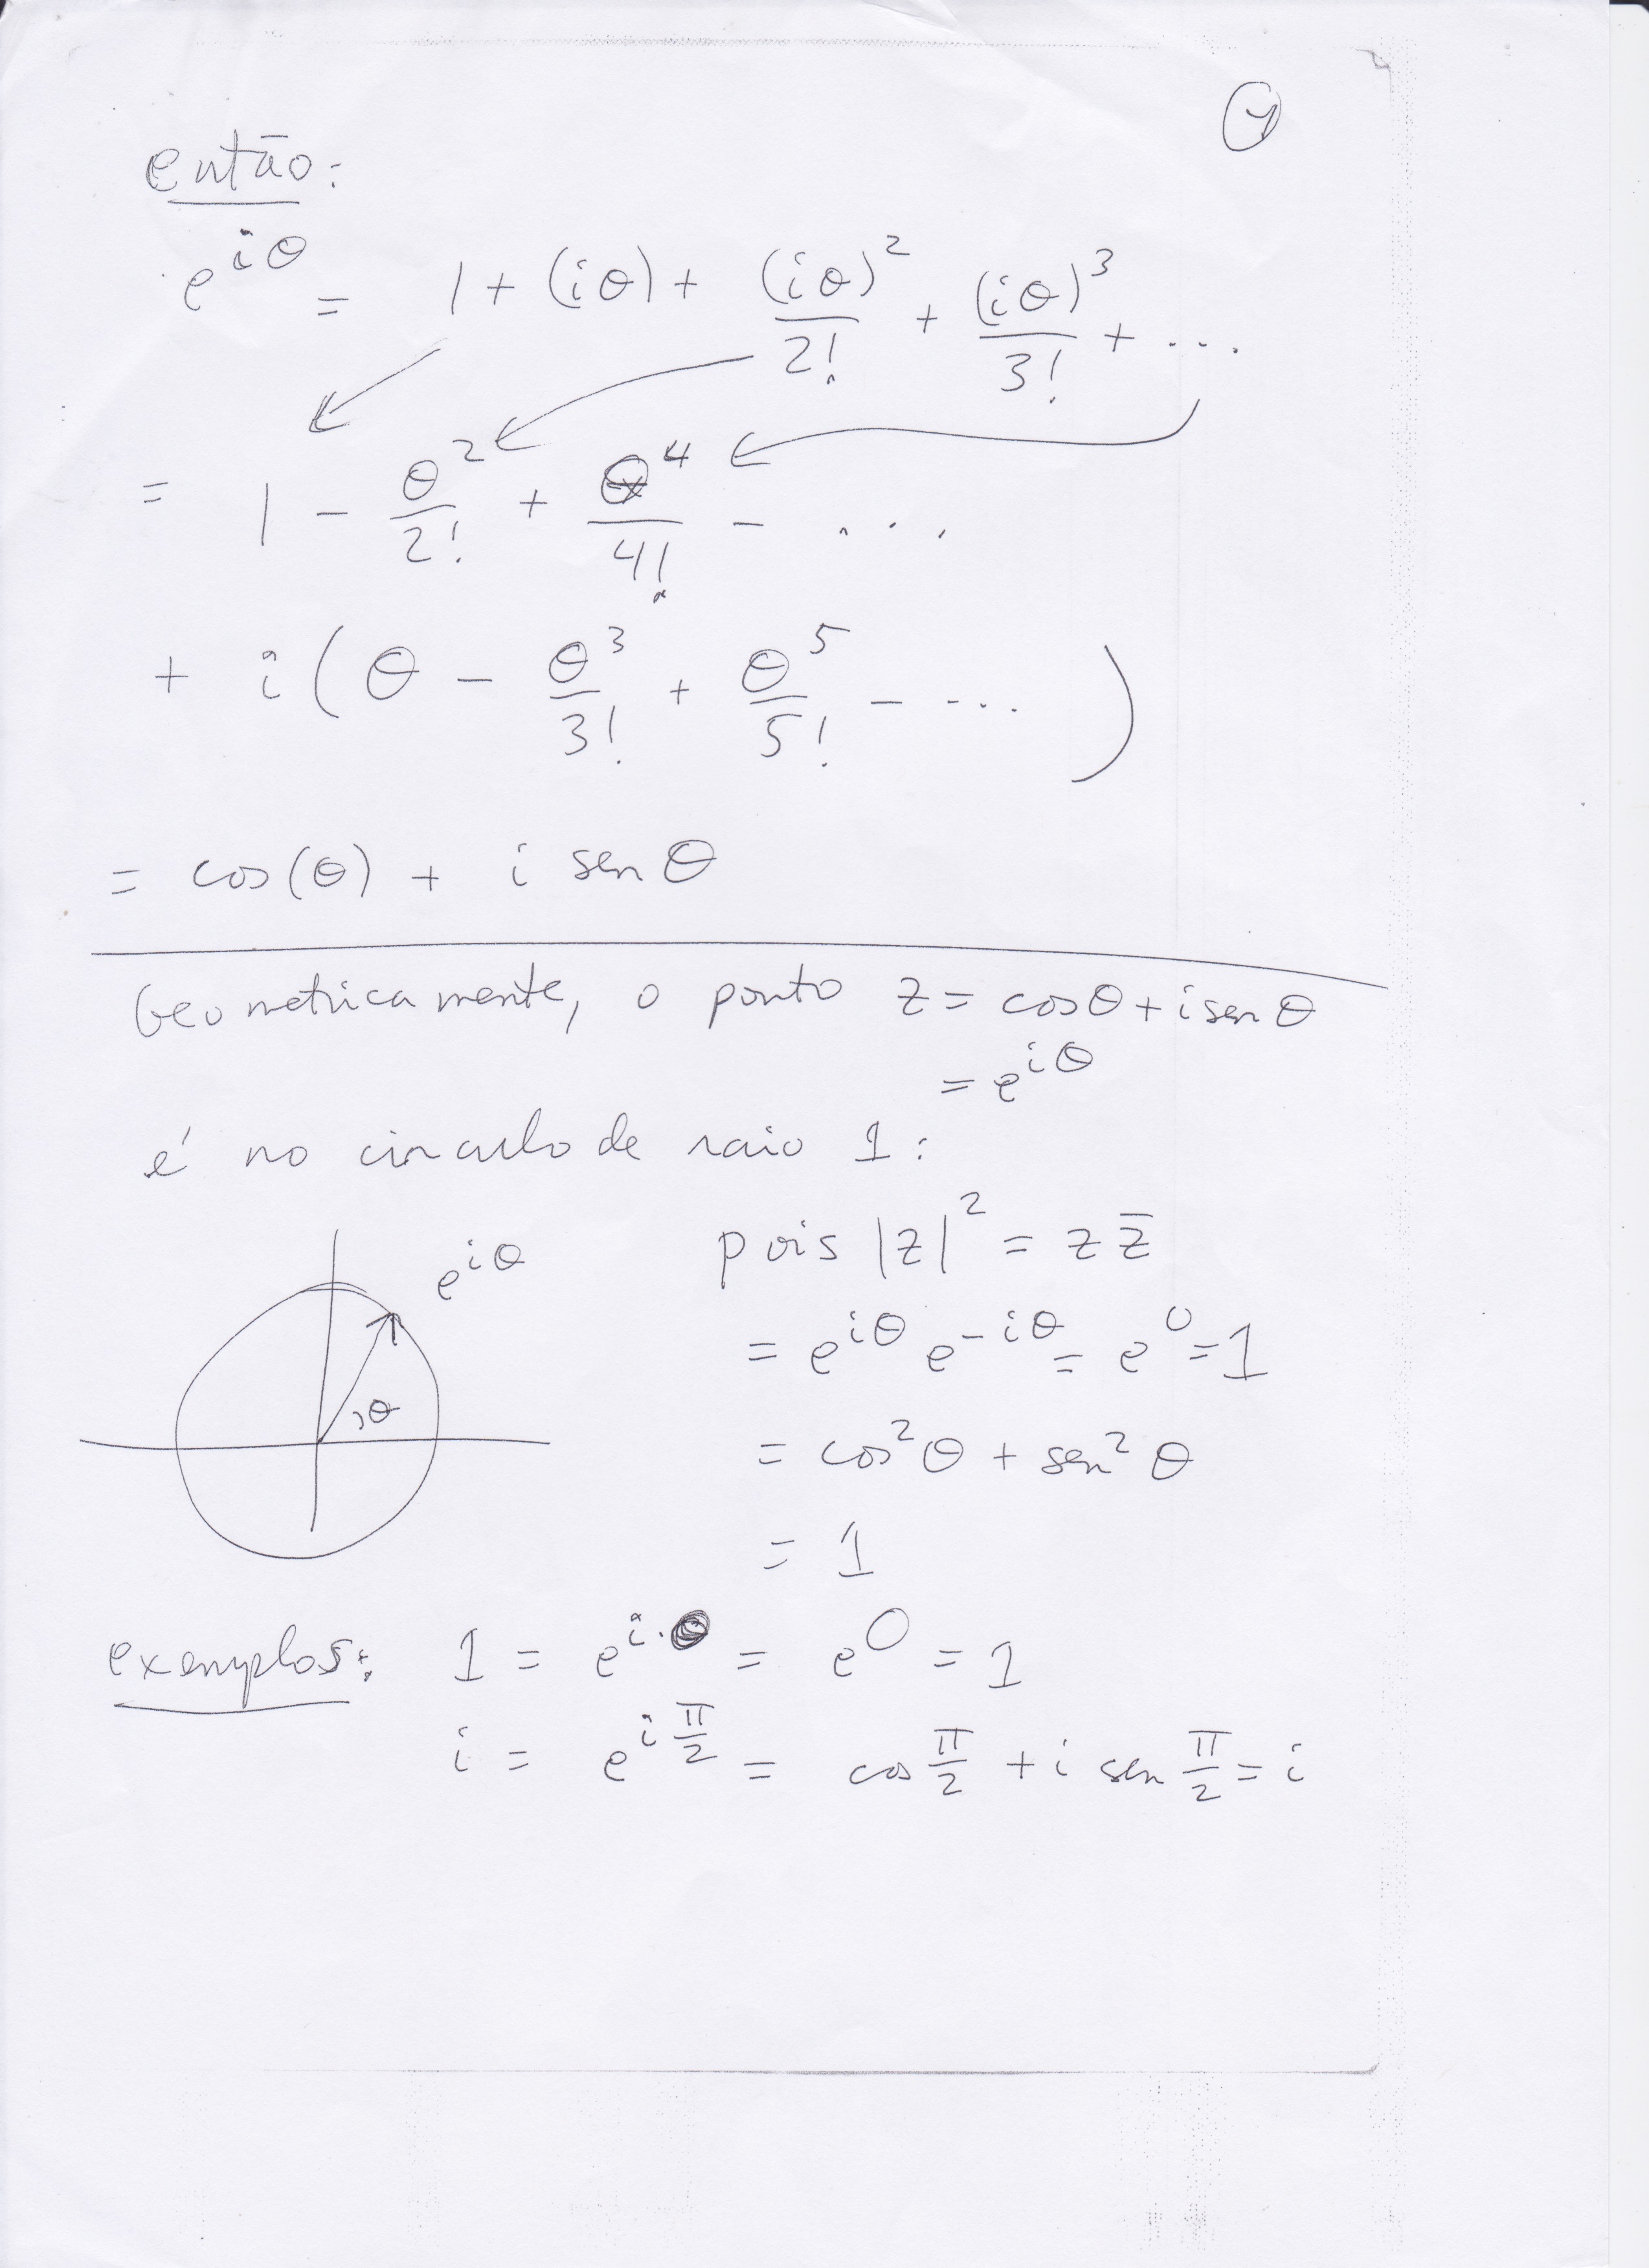 então:
e^{iθ} = 1 + (iθ) + (iθ)^2/2! + (iθ)^3/3! + ...
= 1 - θ^2/2! + θ^4/4! - ...
+ i(θ - θ^3/3! + θ^5/5! - ...)
= cos(θ) + i sen θ
Geometricamente, o ponto z = cosθ + i sen θ
= e^{iθ}
é no circulo de raio 1:
pois |z|^2 = z z̄
e^{iθ}
= e^{iθ} e^{-iθ} = e^0 = 1
θ
= cos^2 θ + sen^2 θ
= 1
exemplos: 1 = e^{i·0} = e^0 = 1
i = e^{i π/2} = cos π/2 + i sen π/2 = i